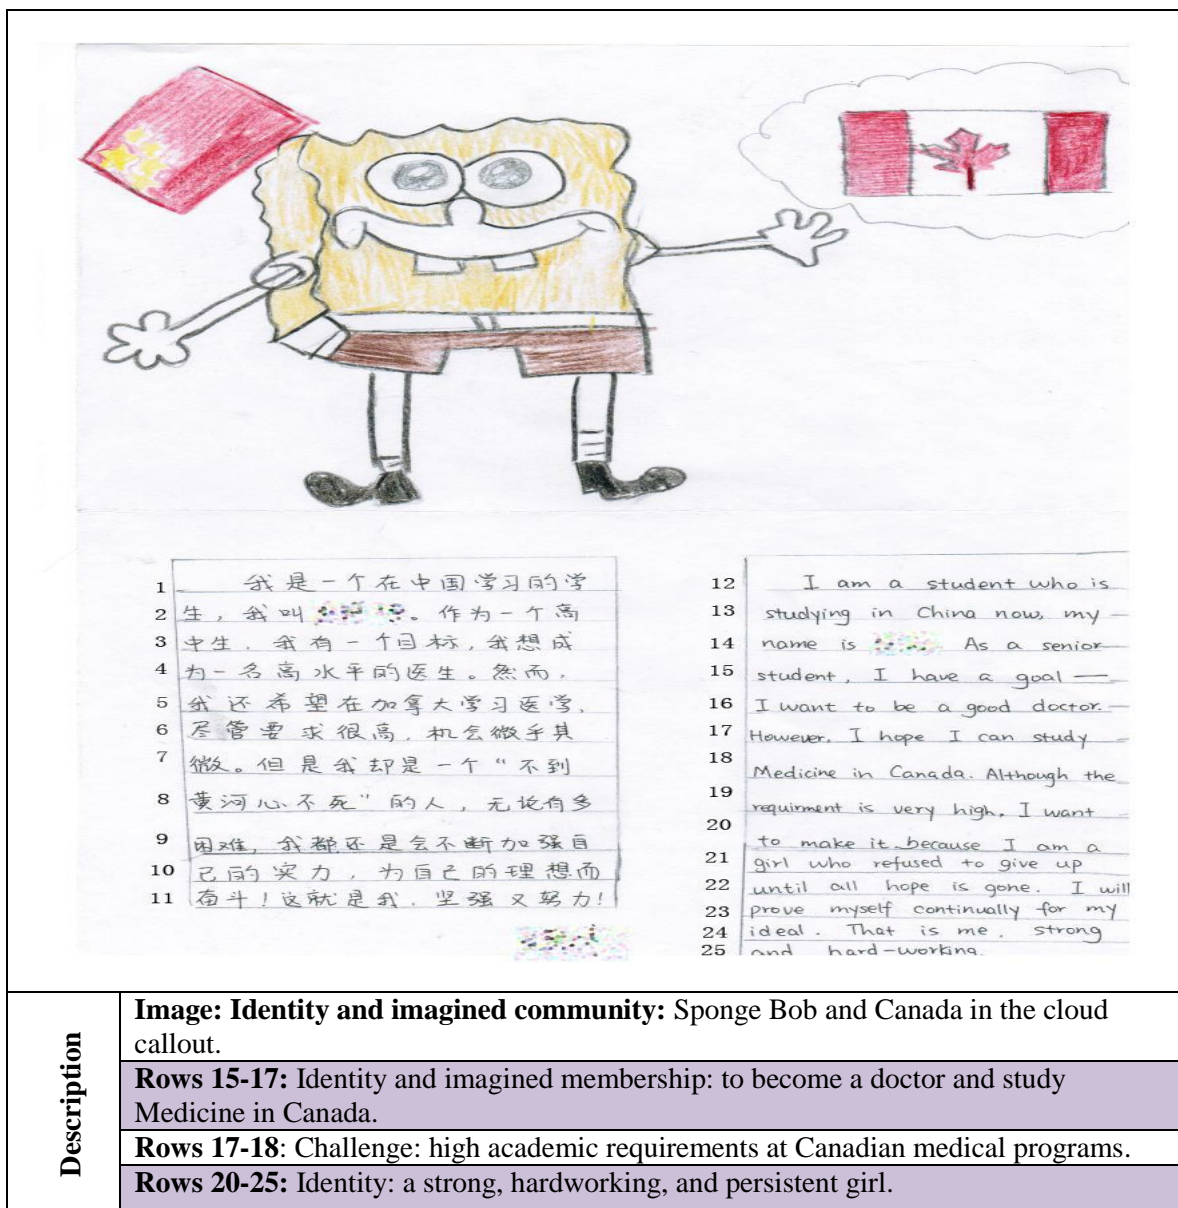 1 我是一个在中国学习的学
2 生,我叫 。作为一个高
3 中生,我有一个目标,我想成
4 为一名高水平的医生。然而,
5 我还希望在加拿大学习医学,
6 尽管要求很高,机会微乎其
7 微。但是我却是一个“不到
8 黄河心不死”的人,无论有多
9 困难,我都还是会不断加强自
10 己的实力,为自己的理想而
11 奋斗!这就是我,坚强又努力!
12 I am a student who is
13 studying in China now, my
14 name is As a senior
15 student, I have a goal —
16 I want to be a good doctor.
17 However, I hope I can study
18 Medicine in Canada. Although the
19 requirment is very high, I want
20 to make it because I am a
21 girl who refused to give up
22 until all hope is gone. I will
23 prove myself continually for my
24 ideal. That is me, strong
25 and hard-working.
Description
Image: Identity and imagined community: Sponge Bob and Canada in the cloud
callout.
Rows 15-17: Identity and imagined membership: to become a doctor and study
Medicine in Canada.
Rows 17-18: Challenge: high academic requirements at Canadian medical programs.
Rows 20-25: Identity: a strong, hardworking, and persistent girl.